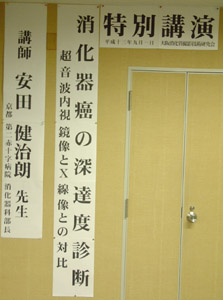 特別講演
平成十二年九月一日 大阪消化管撮影技術研究会
消化器癌の深達度診断
超音波内視鏡像とX線像との対比
講師 安田 健治朗 先生
京都 第二赤十字病院 消化器科部長